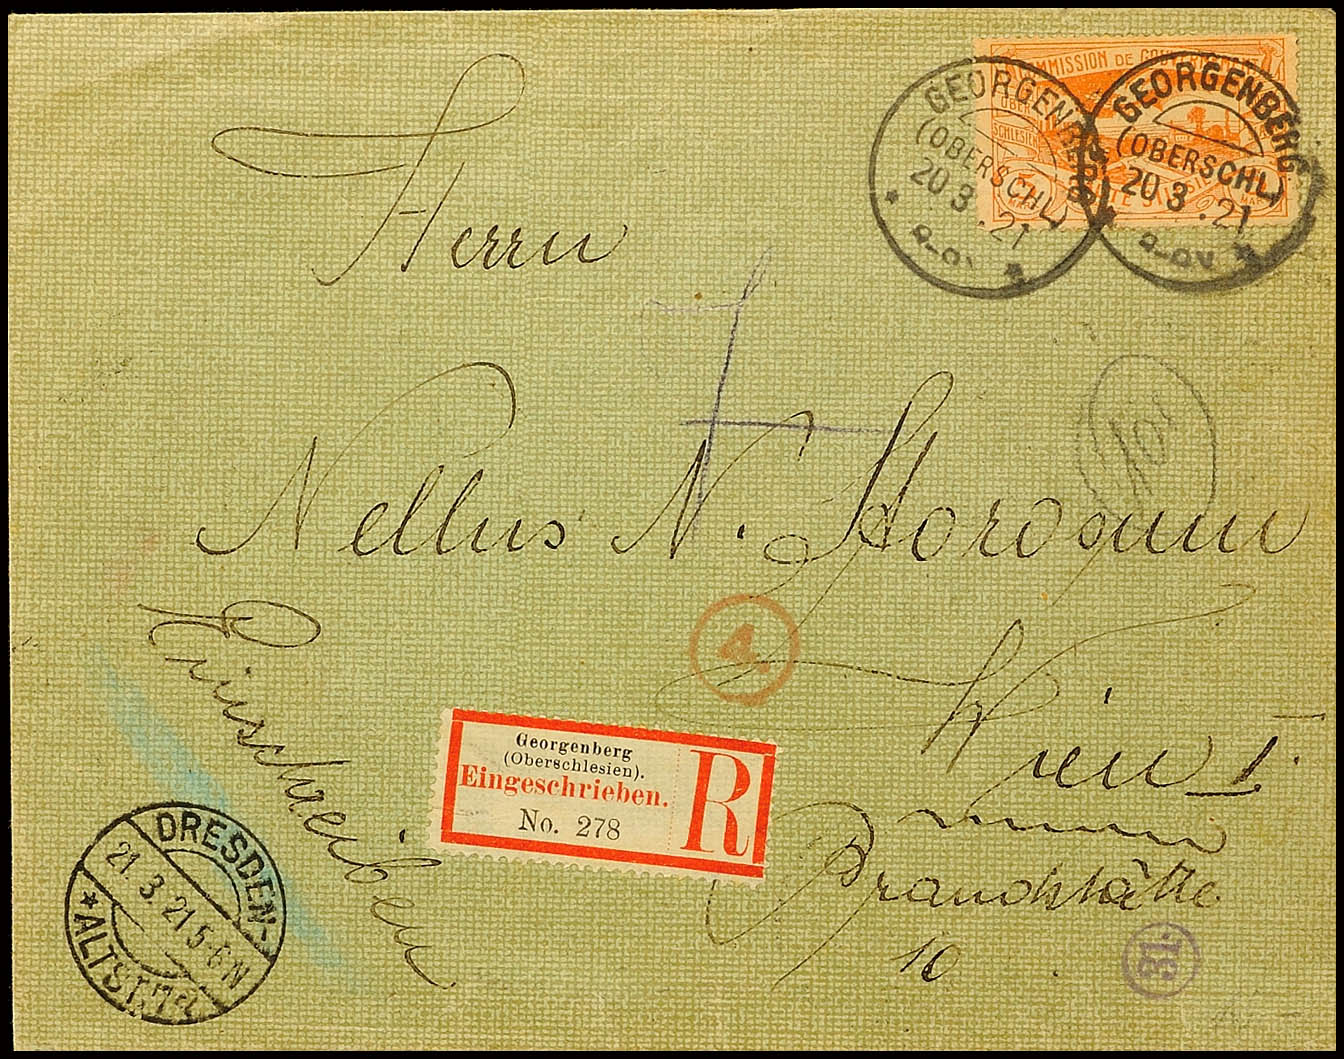 COMMISSION DE GOUV
OBER
SCHLESIEN
GEORGENBERG
(OBERSCHL)
20 3 .21
GEORGENBERG
(OBERSCHL)
20 3 .21
Herrn
Nellus N.
Einschreiben
4.
Wien I.
Brandstätte
10
Georgenberg
(Oberschlesien).
Eingeschrieben.
No. 278
R
DRESDEN-
21. 3. 21 5-6 N
* ALTST.
31.